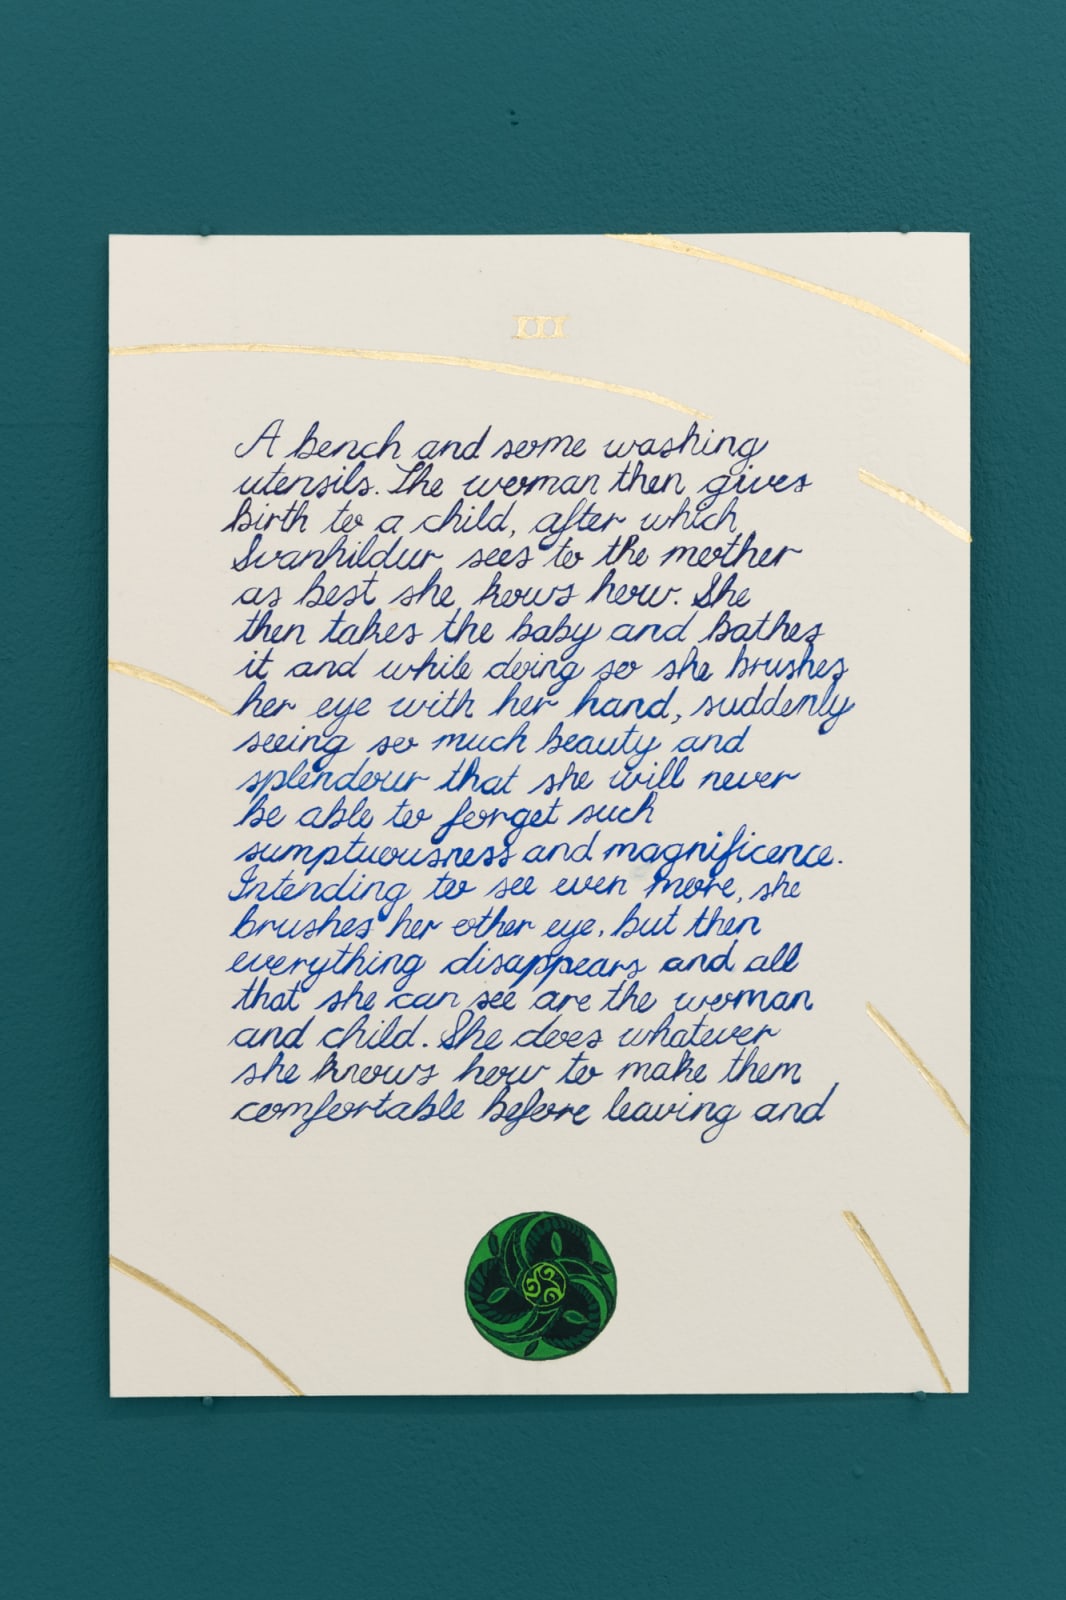 III
A bench and some washing
utensils. The woman then gives
birth to a child, after which
Svanhildur sees to the mother
as best she kows how. She
then takes the baby and bathes
it and while doing so she brushes
her eye with her hand, suddenly
seeing so much beauty and
splendour that she will never
be able to forget such
sumptuousness and magnificence.
Intending to see even more, she
brushes her other eye, but then
everything disappears and all
that she can see are the woman
and child. She does whatever
she knows how to make them
comfortable before leaving and